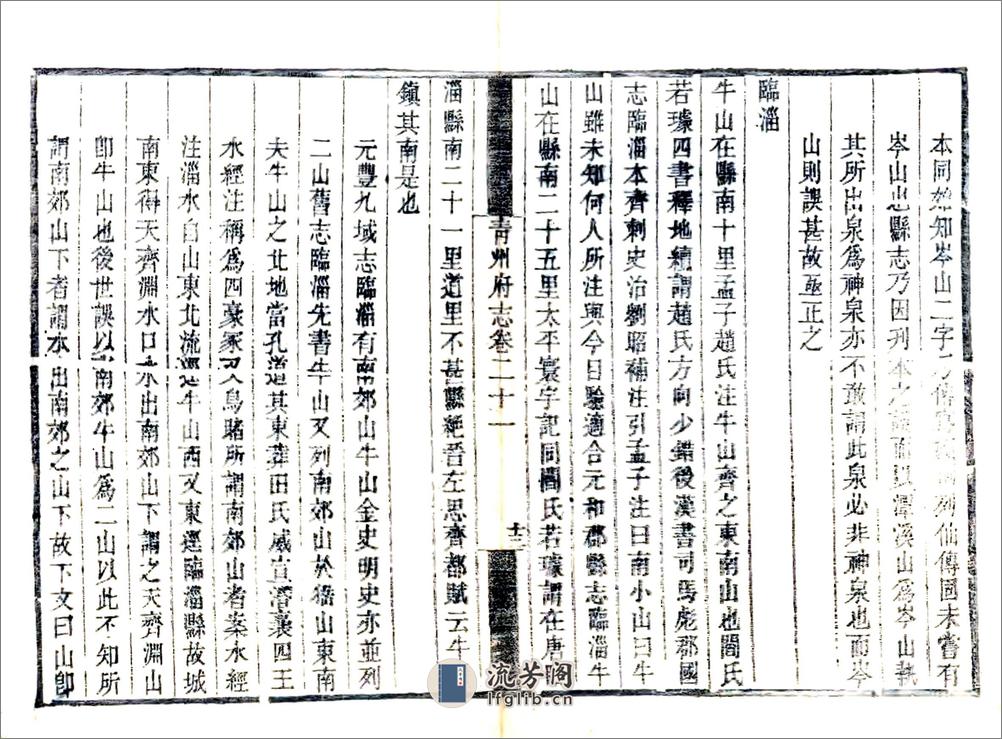 本同如知岑山二字列仙傳固未嘗有
岑山也縣志乃因刊本之而以潭溪山爲岑山執
其所出泉爲神泉亦不敢謂此泉必非神泉也而岑
山則誤甚故亟正之
臨淄
牛山在縣南十里孟子趙氏注牛山齊之東南山也閻氏
若璩四書釋地續謂趙氏方向少錯後漢書司馬彪郡國
志臨淄本齊刺史治劉昭補注引孟子注曰南小山曰牛
山雖未知何人所注與今目驗適合元和郡縣志臨淄牛
山在縣南二十五里太平寰宇記同閻氏若璩謂在唐
青州府志卷二十一
十二
淄縣南二十一里道里不甚懸絶晉左思齊都賦云牛
鎮其南是也
元豐九域志臨淄有南郊山牛山金史明史亦並列
二山舊志臨淄先書牛山又列南郊山於稷山東南
夫牛山之北地當孔道其東葬田氏威宣湣襄四王
水經注稱爲四豪冢人鳥睹所謂南郊山者案水經
注淄水自山東北流逕牛山西又東逕臨淄縣故城
南東得天齊淵水口水出南郊山下謂之天齊淵山
卽牛山也後世誤以南郊牛山爲二山以此不知所
謂南郊山下者謂水出南郊之山下故下文曰山卽
流芳閣
lfglib.cn